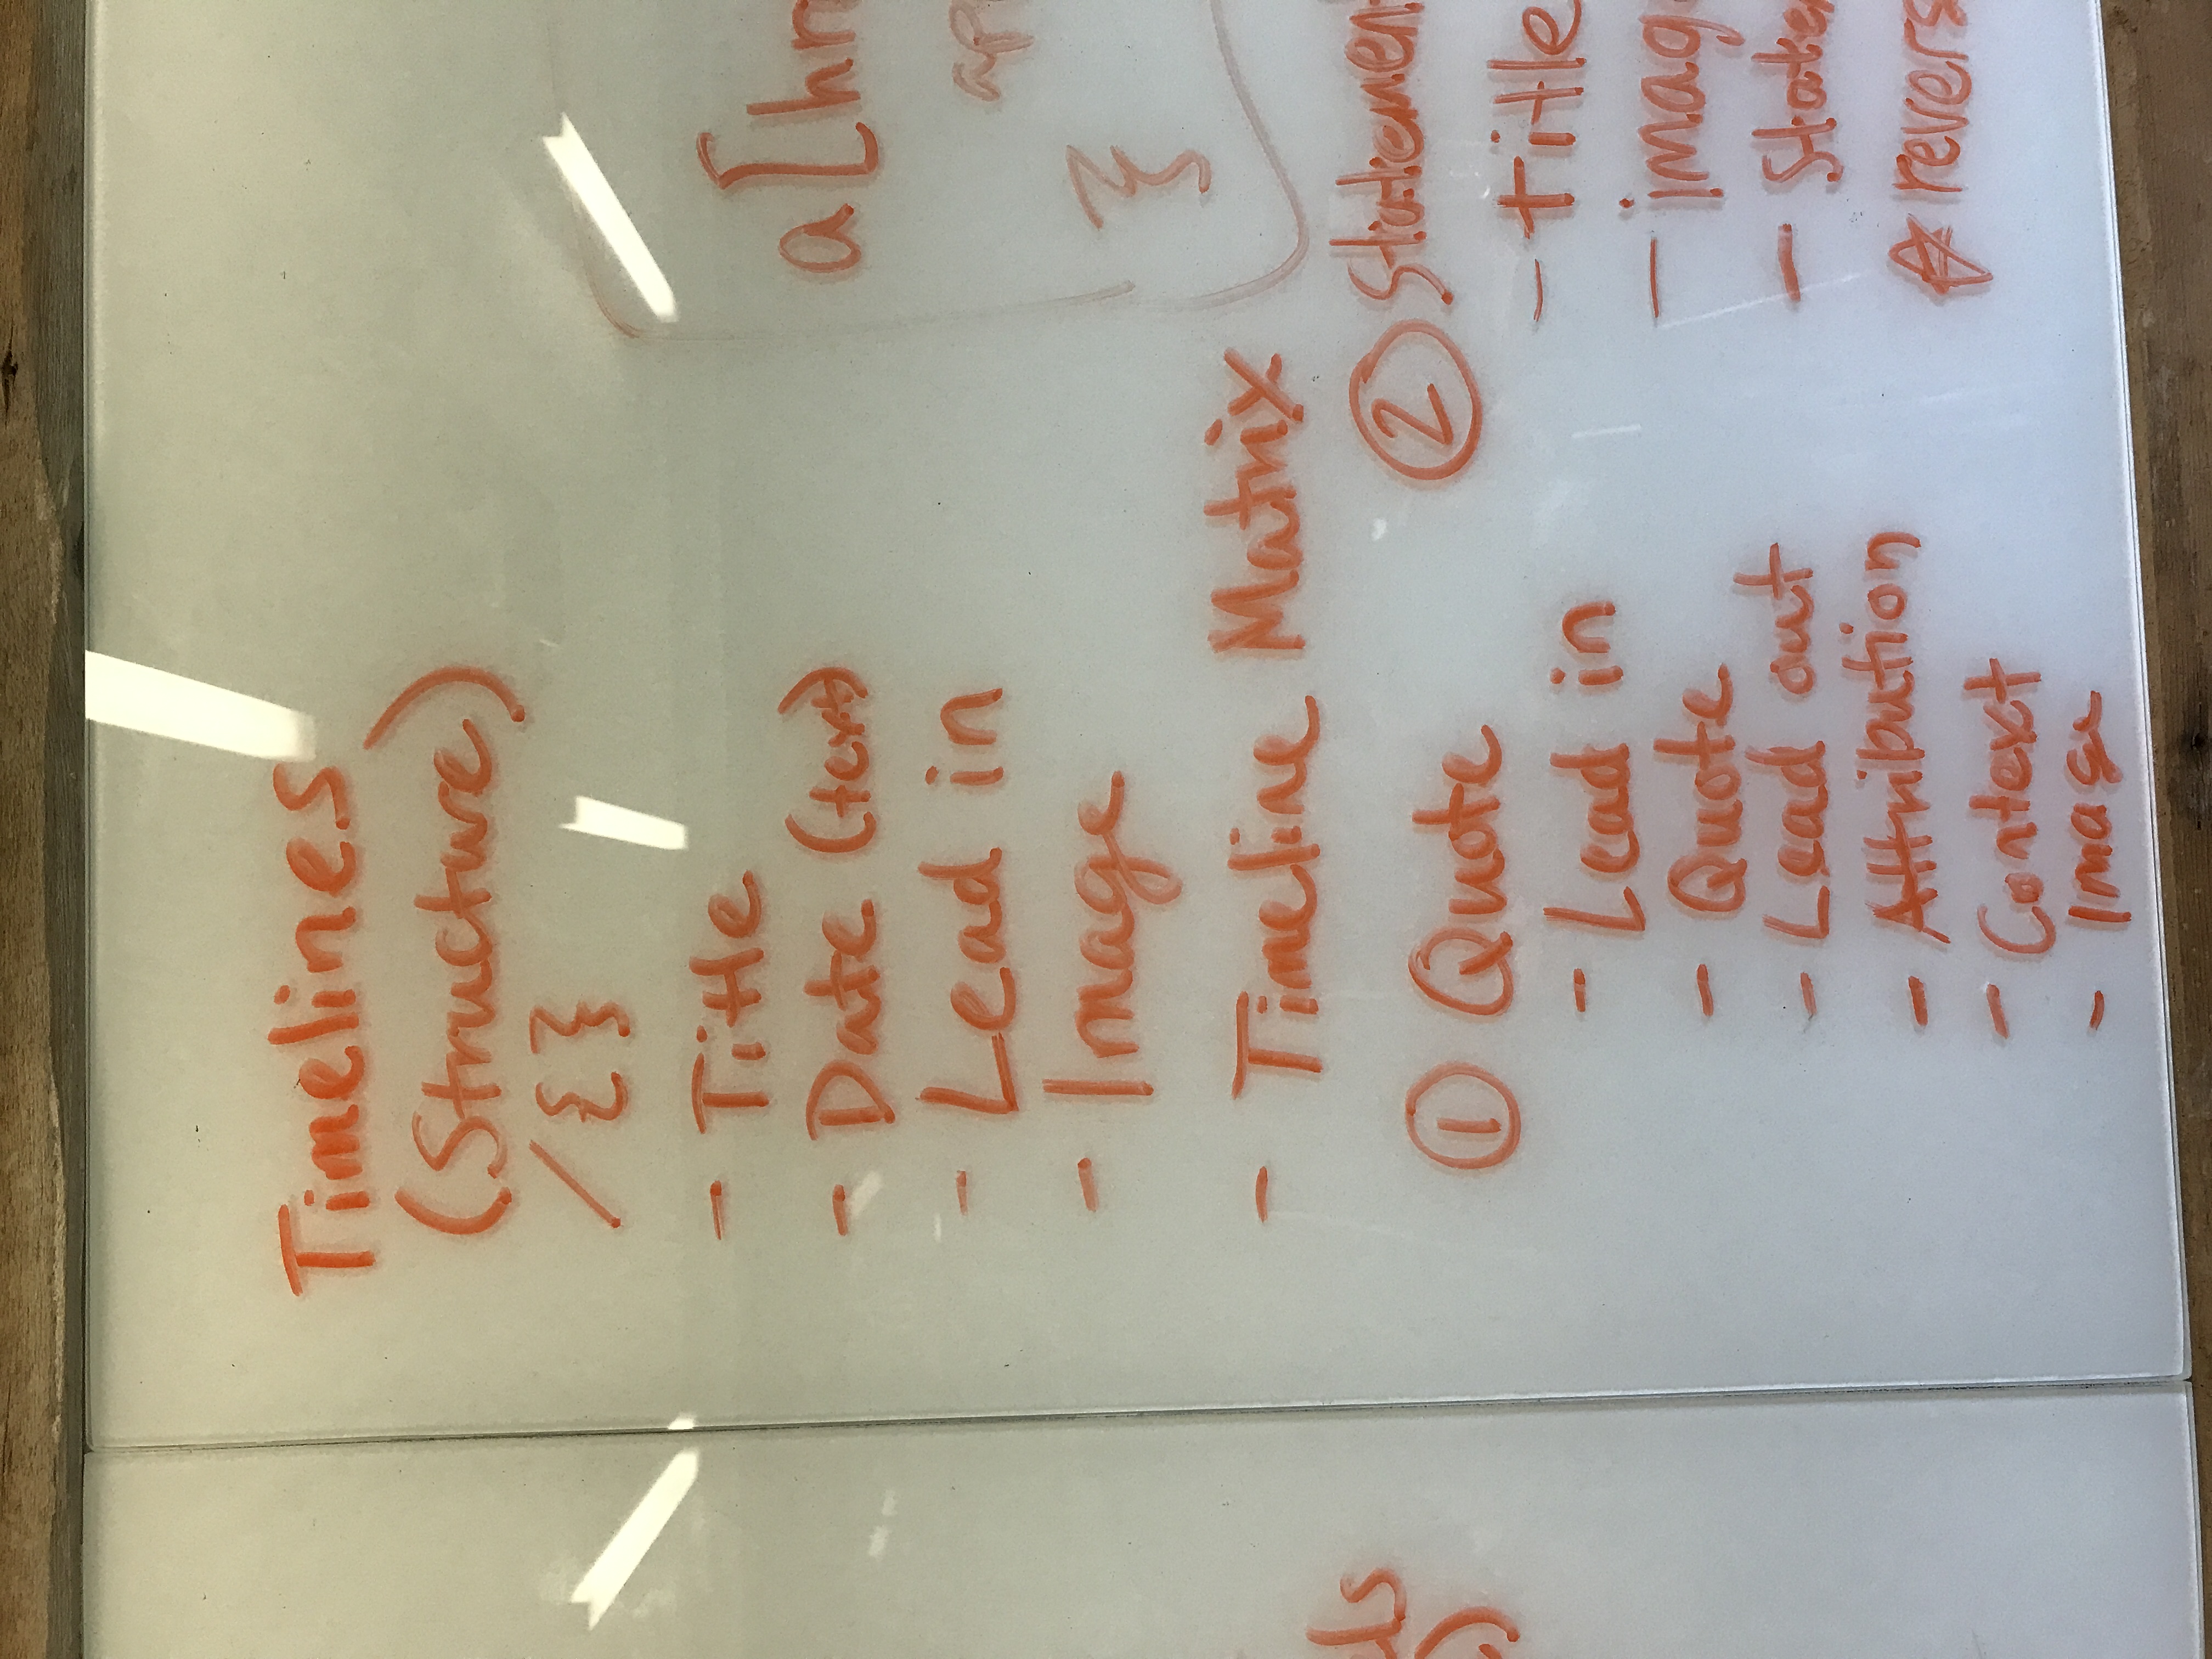 Timelines
(Structure)
/{}
- Title
- Date (text)
- Lead in
- Image
- Timeline Matrix
① Quote
- Lead in
- Quote
- Lead out
- Attribution
- Context
- Image
a[hr
ap
}
② Statement
- title
- imag
- State
☆ revers
ls